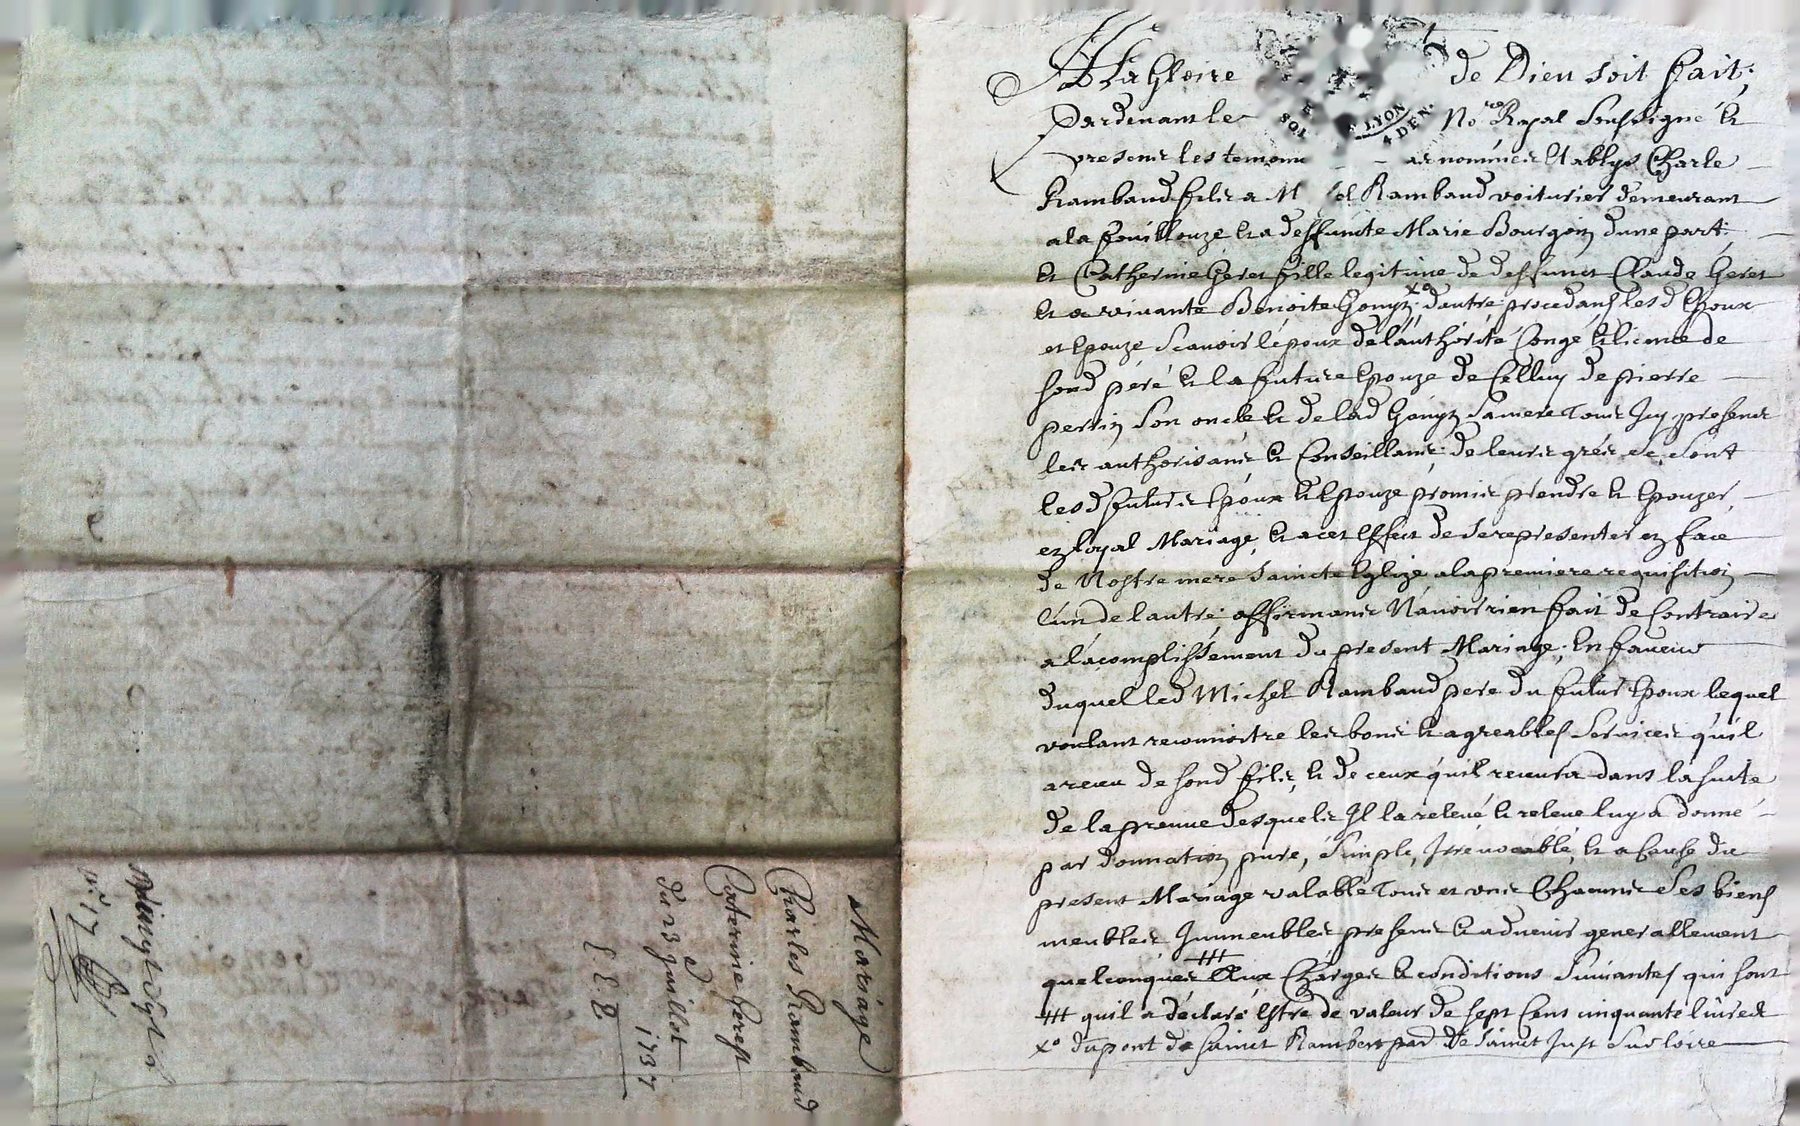 Mariage
Charles Rambaud
&
Caterine Gerest
du 23 Juillet 1737
E. E. E
A La Gloire de Dieu soit fait;
Pardevant le No.re Royal soussigné et
presents les temoins nommés Etablys Charle
Rambaud fils a M el Rambaud voiturier demeurant
a la fouillouze et a deffuncte Marie Bourgoin dune part;
et Catherine Gerest fille legitime de deffunct Claude Gerest
et a vivante Benoite Gonyn xº dautre procedans lesd Epoux
et Epouze scavoir lépoux de lauthórité Congé et licence de
sond péré et la future Epouze de Celluy de pierre
perrin son oncle et de lad Gonyn samere tous Icy presents
les authorisants et Conseillants, de leurs grés se sont
lesd futurs Epoux et Epouze promis prendre et Epouzer
en loyal Mariage, et a cet Effect de se representer en face
de Nostre mere saincte Eglize a la premiere requisition
l'un de lautre; affirmants N'avoir rien fait de Contraire
a lacomplissement du present Mariage; En faveur
duquel led Michel Rambaud pere du futur Epoux lequel
voulant reconnoitre les bons et agreables services qu'il
a receu de sond fils, et de ceux qu'il recevra dans la suite
de la preuve desquels Il la relevé et releve luy a donné
par donnation pure, simple, Irrévocable, et a Cause du
present Mariage valable tous et uns Chacuns ses biens
meubles Immeubles presents et advenirs generallement
quelconques ⧻ Aux Charges et conditions suivantes qui sont
⧻ quil a déclaré Estre de valeur de sept Cent cinquante livres
xº du pont de sainct Rambert par de sainct Just sur loire